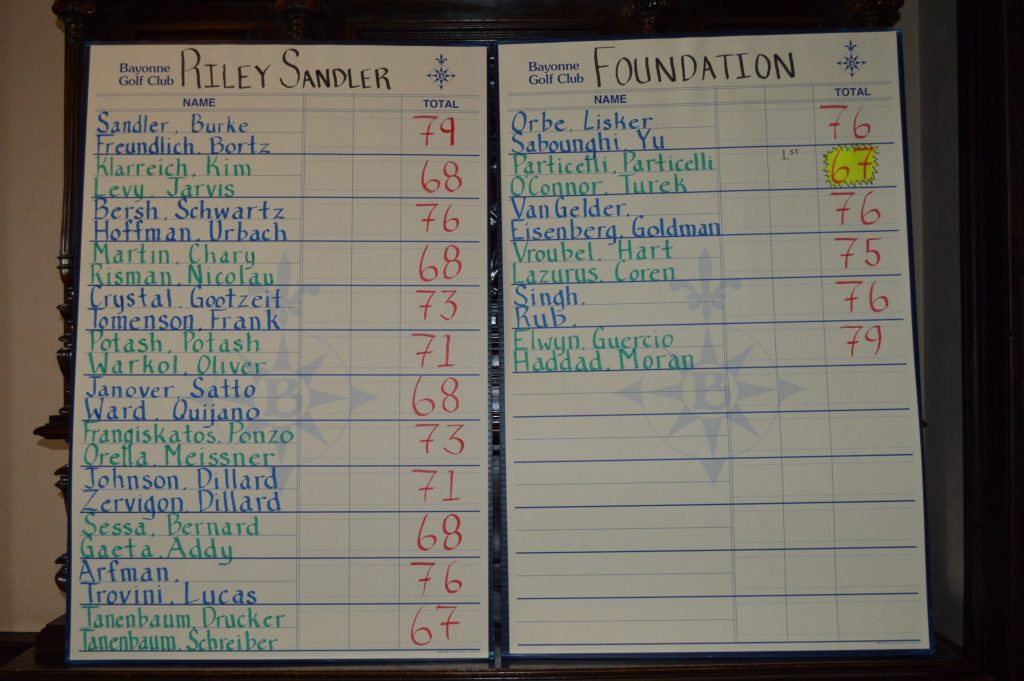 Bayonne
Golf Club
RILEY SANDLER
NAME TOTAL
Sandler, Burke 79
Freundlich, Bortz
Klarreich, Kim 68
Levy, Jarvis
Bersh, Schwartz 76
Hoffman, Urbach
Martin, Chary 68
Risman, Nicolau
Crystal, Gootzeit 73
Tomenson, Frank
Potash, Potash 71
Warkol, Oliver
Janover, Satto 68
Ward, Quijano
Frangiskatos, Ponzo 73
Orella, Meissner
Johnson, Dillard 71
Zervigon, Dillard
Sessa, Bernard 68
Gaeta, Addy
Arfman, 76
Trovini, Lucas
Tanenbaum, Drucker 67
Tanenbaum, Schreiber
B
Bayonne
Golf Club
FOUNDATION
NAME TOTAL
Orbe, Lisker 76
Sabounghi, Yu
Particelli, Particelli 1ST 67
O'Connor, Turek
Van Gelder, 76
Eisenberg, Goldman
Vroubel, Hart 75
Lazurus, Coren
Singh, 76
Rub,
Elwyn, Guercio 79
Haddad, Moran
B